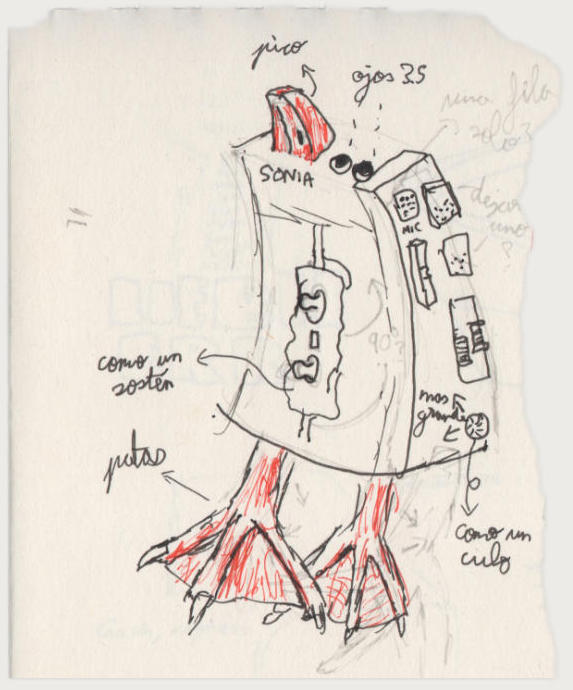 pico
ojos 3.5
una fila
solo?
SONIA
MIC
dejar
uno
?
90°?
como un
sostén
mas
grande
patas
como un
culo